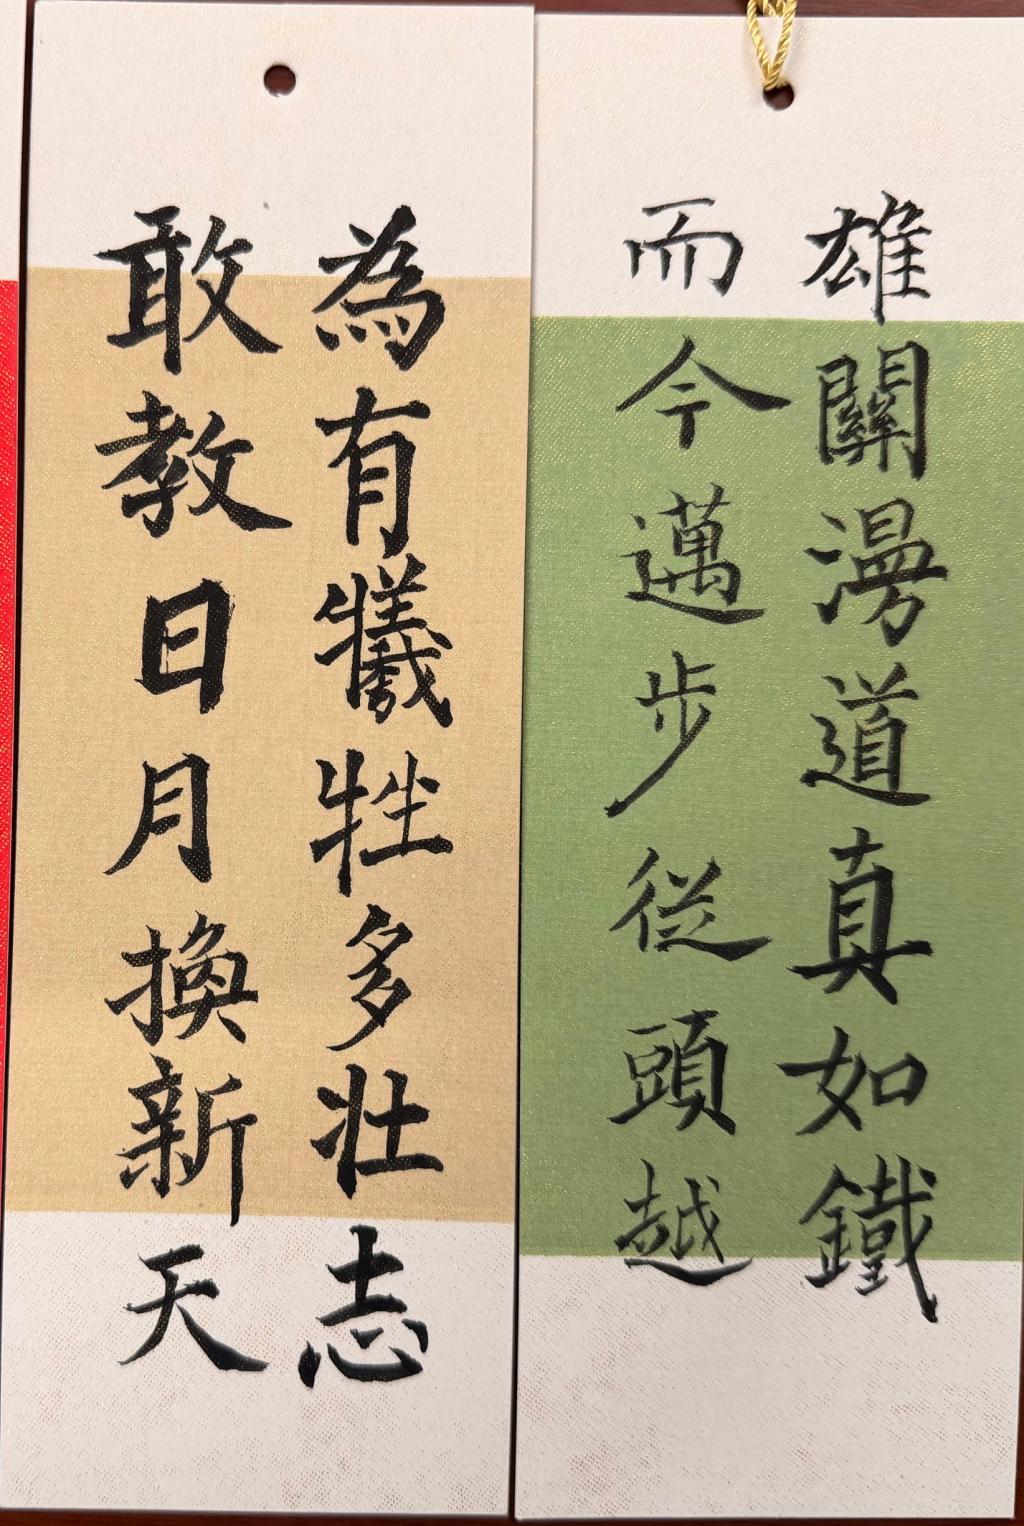 雄關漫道真如鐵
而今邁步從頭越
為有犧牲多壯志
敢教日月換新天